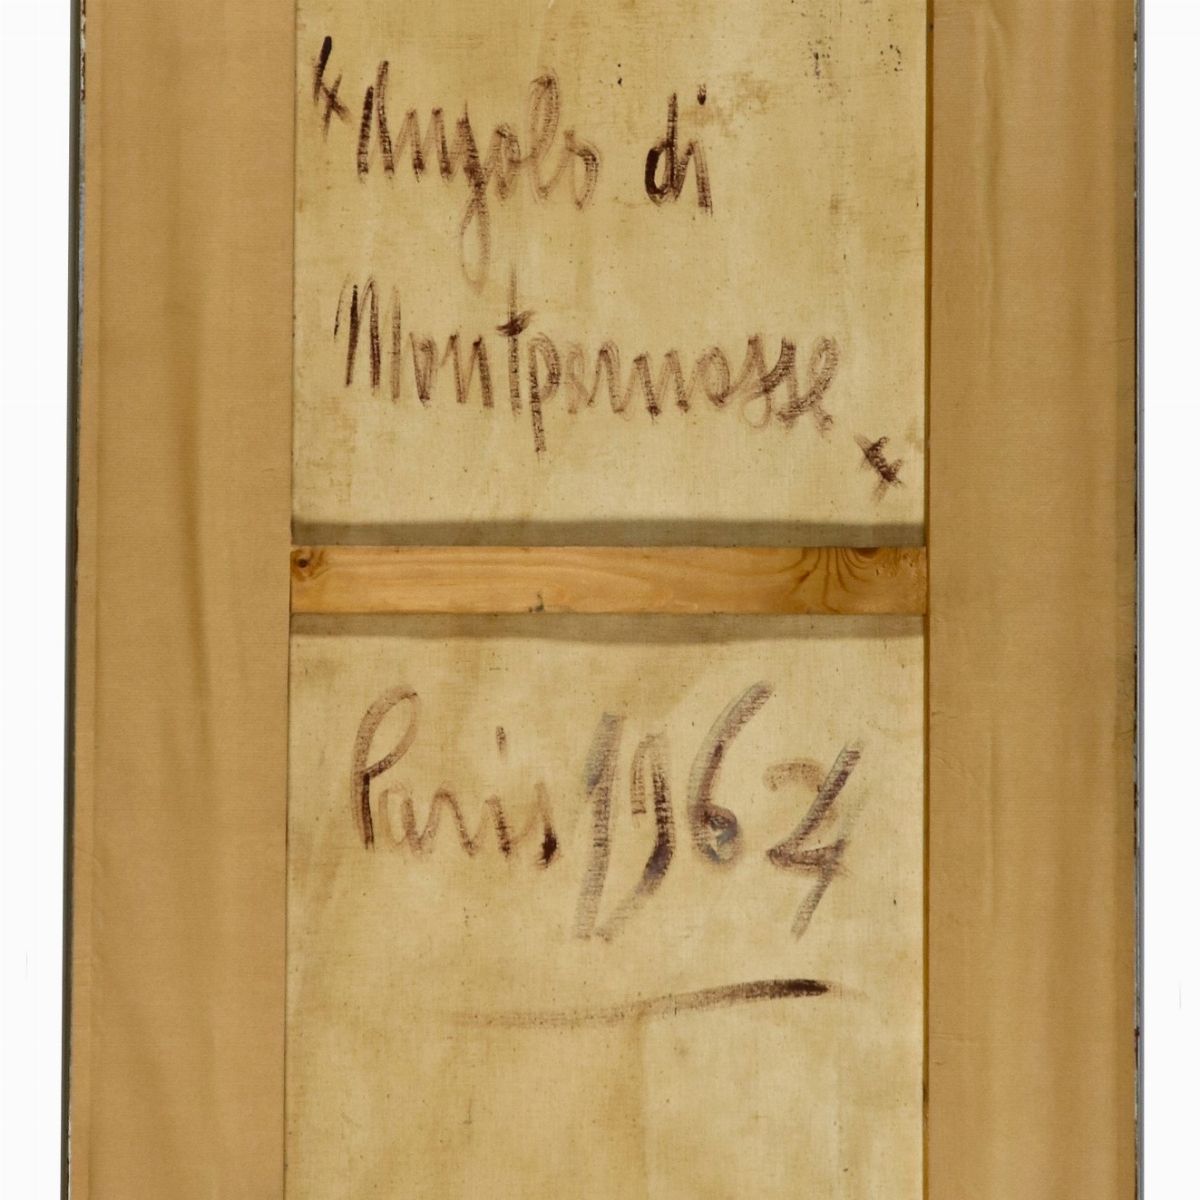 "Angolo di
Montpernosse"
Paris 1964